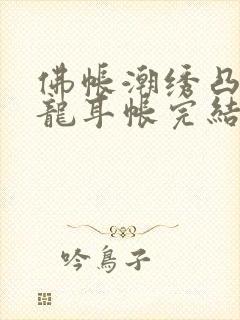 佛帳潮绣凸
龍耳帐完結
吟鳥子